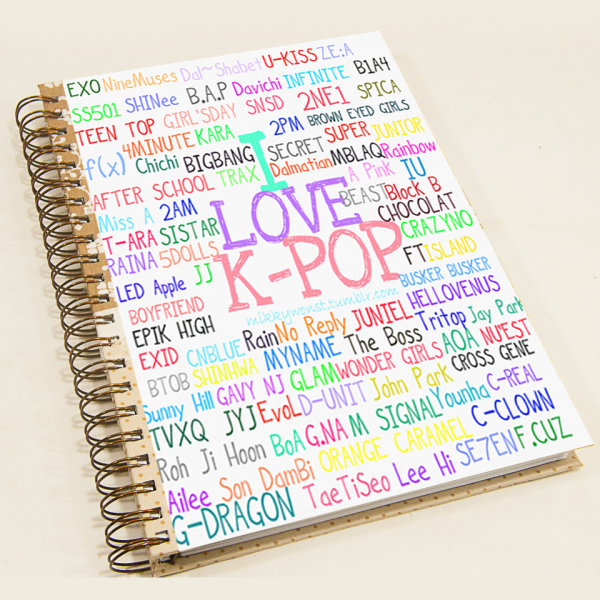 EXO NineMuses Dal~Shabet U-KISS ZE:A
SS501 SHINee B.A.P Davichi INFINITE B1A4
TEEN TOP GIRL'SDAY SNSD 2NE1 SPICA
4MINUTE KARA 2PM BROWN EYED GIRLS
f(x) Chichi BIGBANG SECRET SUPER JUNIOR
AFTER SCHOOL TRAX Dalmatian MBLAQ Rainbow
Miss A 2AM A Pink IU
T-ARA SISTAR BEAST Block B
RAINA 5DOLLS CHOCOLAT
I
LOVE
K-POP
mikkywonst.tumblr.com
CRAZYNO
LED Apple JJ FTISLAND
BOYFRIEND BUSKER BUSKER
EPIK HIGH Rain No Reply JUNIEL HELLOVENUS
EXID CNBLUE MYNAME The Boss Tritop Jay Park
BTOB SHINHWA GLAM WONDER GIRLS AOA NU'EST
Sunny Hill GAVY NJ D-UNIT John Park CROSS GENE
TVXQ JYJ EvoL M SIGNAL Younha C-REAL
Roh Ji Hoon BoA G.NA ORANGE CARAMEL C-CLOWN
Ailee Son DamBi Lee Hi SE7EN F.CUZ
G-DRAGON TaeTiSeo